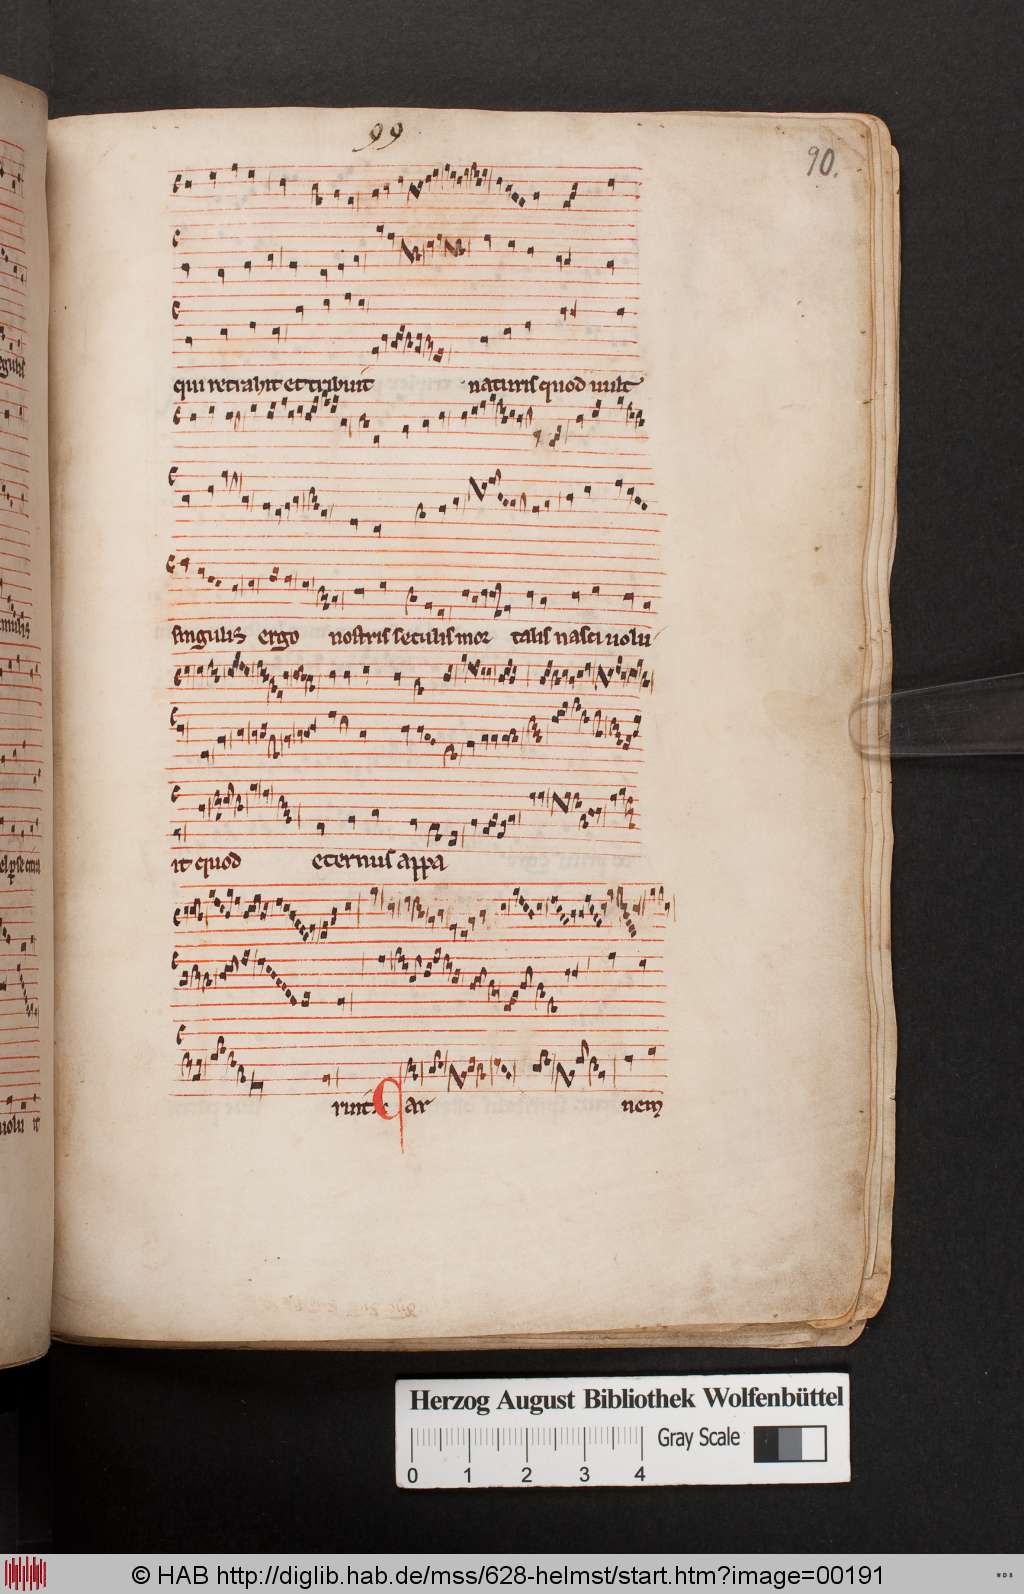 99
90.
qui retrahit et tribuit naturis quod uult
singulis ergo nostris seculis mor talis nasci uolu
it quod eternus appa
ruit. Car nem
uolu it
Herzog August Bibliothek Wolfenbüttel
Gray Scale
0 1 2 3 4
© HAB http://diglib.hab.de/mss/628-helmst/start.htm?image=00191